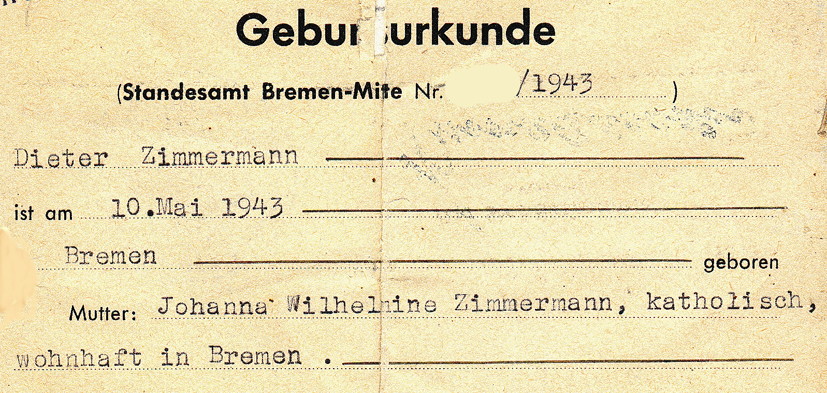 Geburtsurkunde
(Standesamt Bremen-Mitte Nr. /1943 )
Dieter Zimmermann
ist am 10.Mai 1943
Bremen geboren
Mutter: Johanna Wilhelmine Zimmermann, katholisch,
wohnhaft in Bremen .